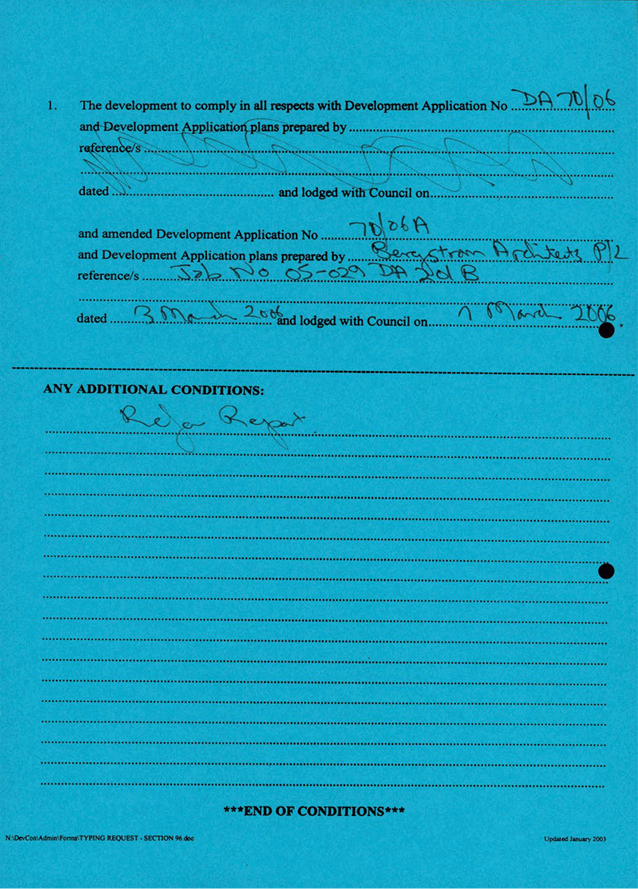 1. The development to comply in all respects with Development Application No DA 70/06
and Development Application plans prepared by
reference/s
dated and lodged with Council on
and amended Development Application No 70/06A
and Development Application plans prepared by Bergstrom Architects P/L
reference/s Job No 05-029 DA 201 B
dated 3 March 2006 and lodged with Council on 7 March 2006
ANY ADDITIONAL CONDITIONS:
Refer Report
***END OF CONDITIONS***
N:\DevCon\Admin\Forms\TYPING REQUEST - SECTION 96.doc Updated January 2003